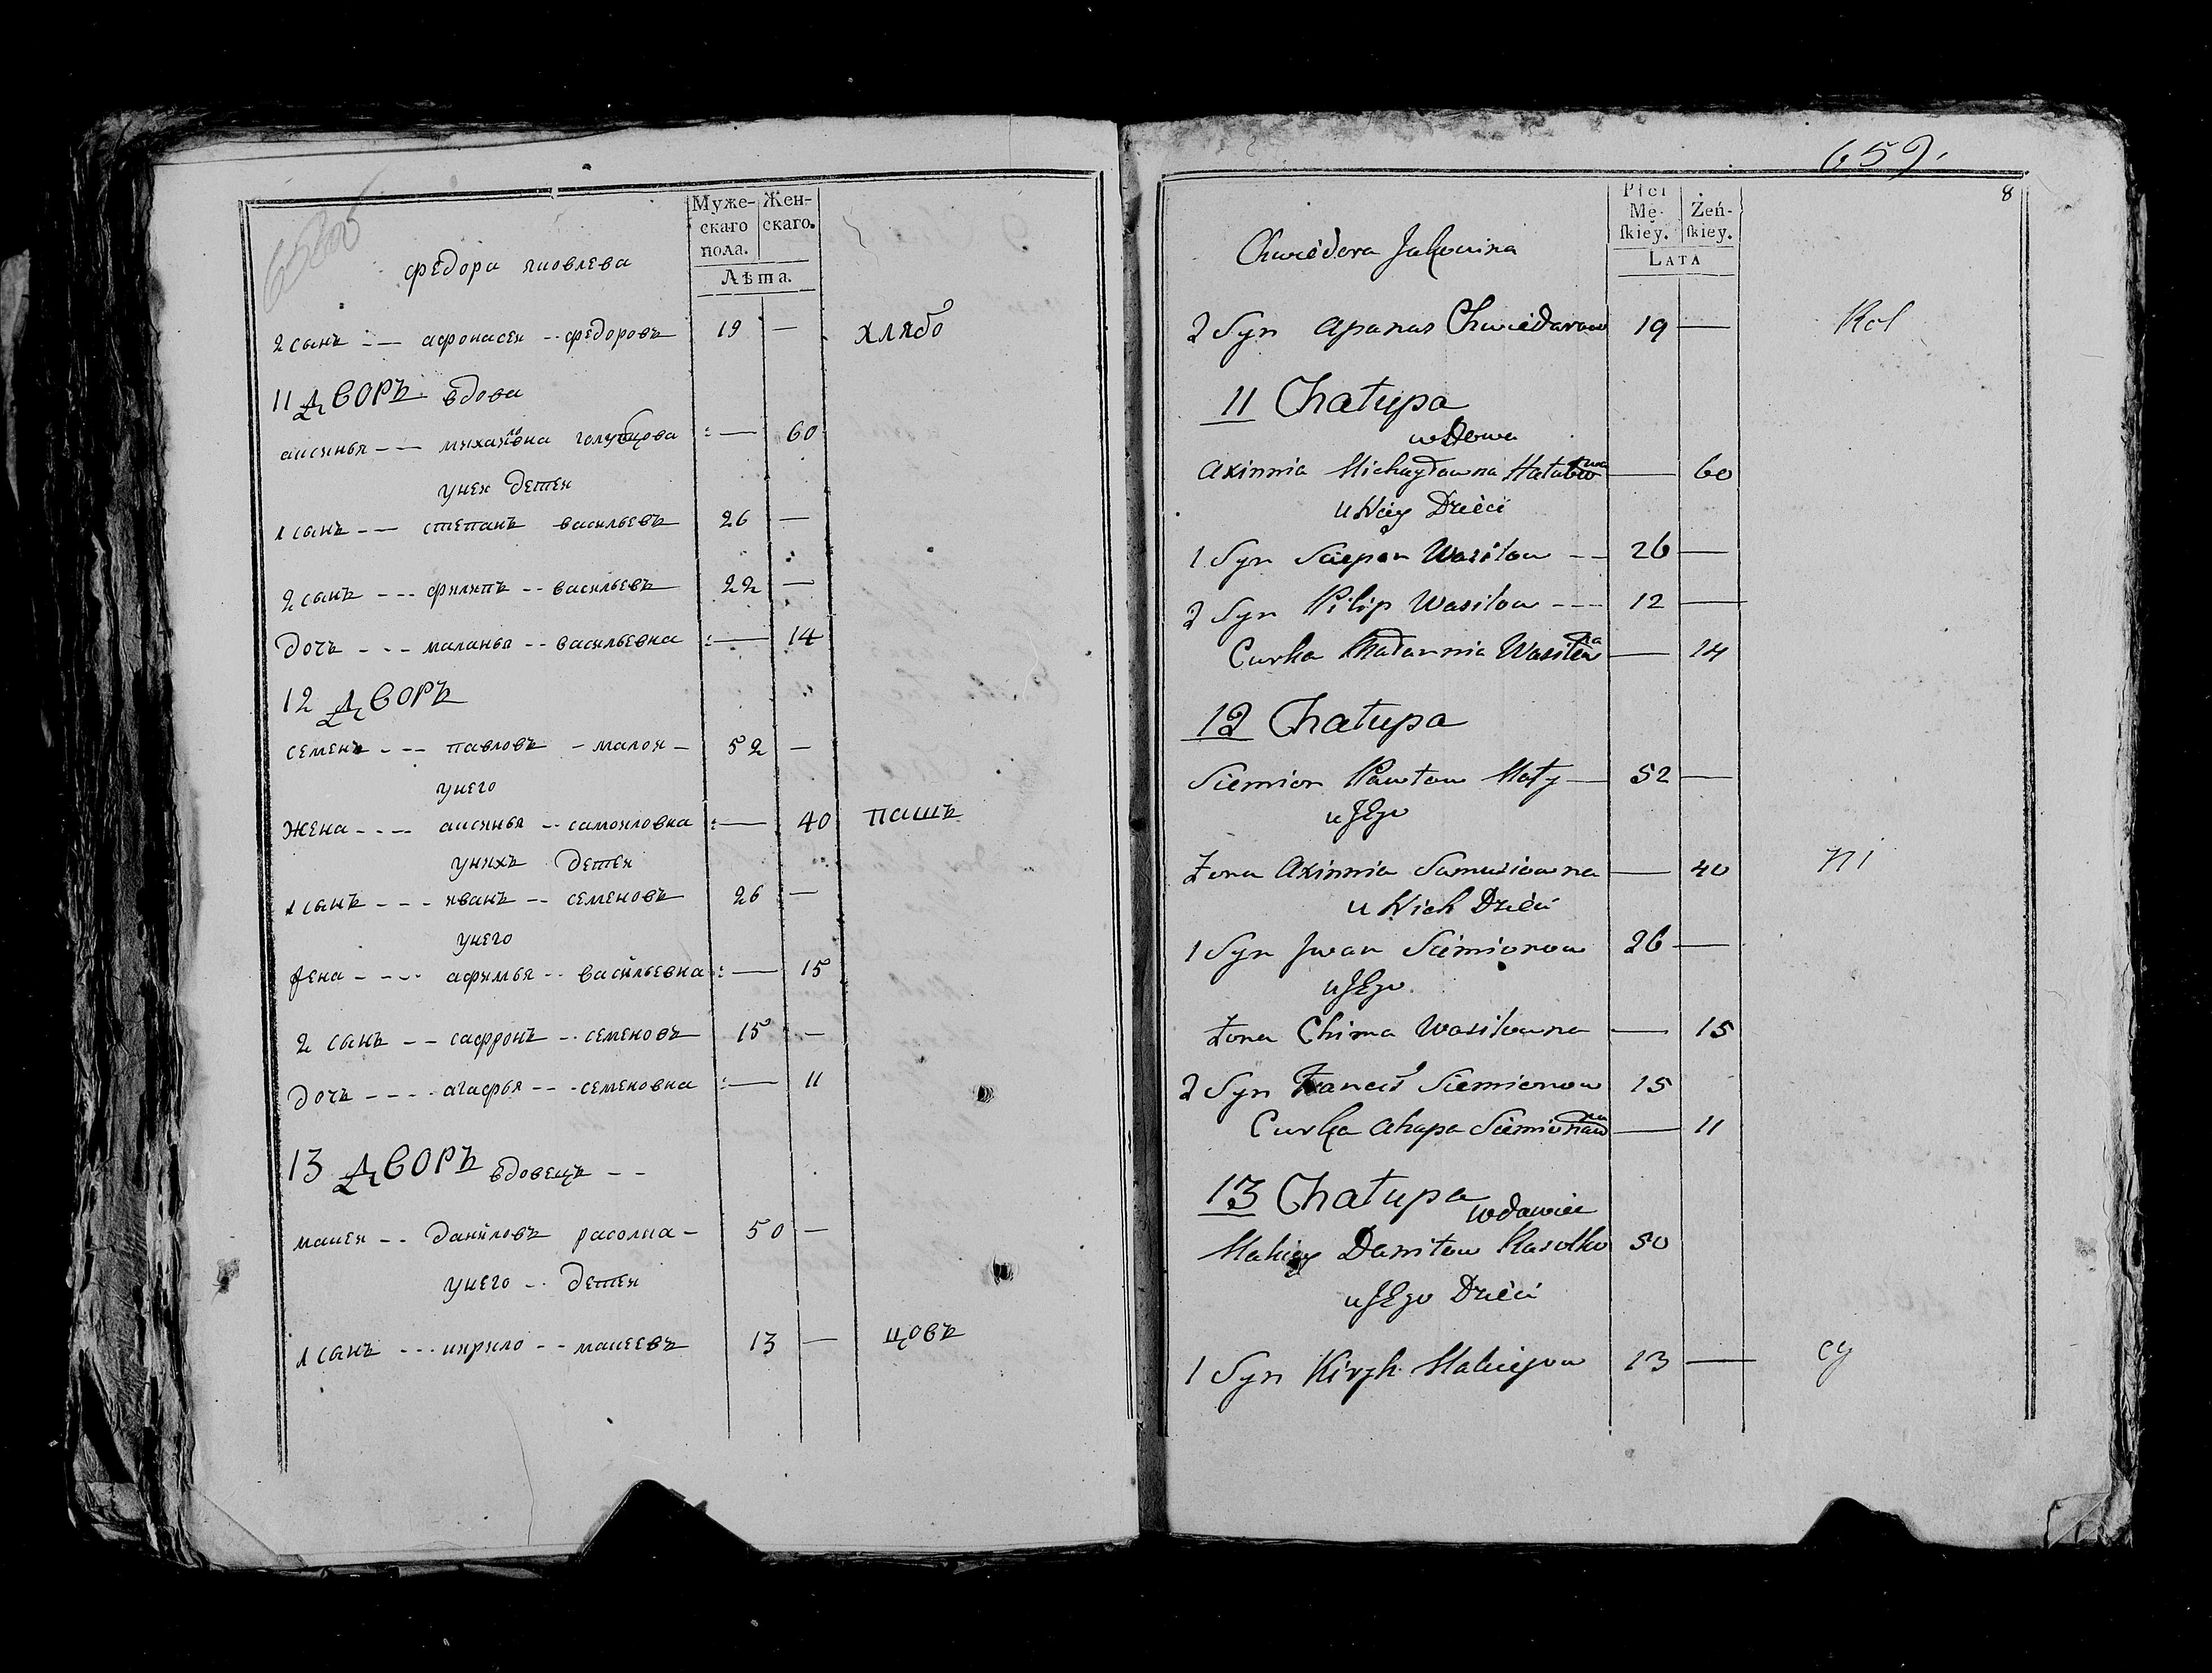 658об
Муже-скаго пола. Жен-скаго.
Лѣта.
федора яковлева
2 сынъ -- афонасеи -- федоровъ 19 — хлябо
11 дворъ вдова
аксинья -- михайловна голубцова — 60
унеи детеи
1 сынъ -- степанъ васильевъ 26 —
2 сынъ --- филипъ -- васильевъ 22 —
дочь --- маланья -- васильевна — 14
12 дворъ
семенъ --- павловъ - малои - 52 —
унего
жена ---- аксинья -- самоиловна — 40 пашъ
унихъ детеи
1 сынъ --- иванъ -- семеновъ 26 —
унего
жена ---- афимья -- васильевна — 15
2 сынъ -- сафронъ -- семеновъ 15 —
дочь ---- агафья --- семеновна — 11
13 дворъ вдовецъ --
макеи -- данйловъ расолка - 50 —
унего -- детеи
1 сынъ --- кирило -- макеевъ 13 — цовъ
659.
8
Płci Mę-skiey. Żeń-skiey.
Lata
Chwiedora Jakowina
2 Syn Apanas Chwiedarow 19 — Kol
11 Chałupa
wdowa
Axinnia Michayłowna — 60
u Niey Dzieci
1 Syn Sciepan Wasilow -- 26 —
2 Syn Pilip Wasilow --- 12 —
Curka Małannia Wasilewna — 14
12 Chałupa
Siemion Pawłow Mały — 52 —
u Jego
Żona Axinnia Samusiowna — 40 ni
u Nich Dzieci
1 Syn Jwan Siemionow 26 —
u Jego
Żona Chima Wasilowna — 15
2 Syn Siemionow 15
Curka Ahapa Siemionowna — 11
13 Chałupa
wdawiec
Makiey Daniłow Rasolko 50
u Jego Dzieci
1 Syn Kiryło Makiejow 13 — cy